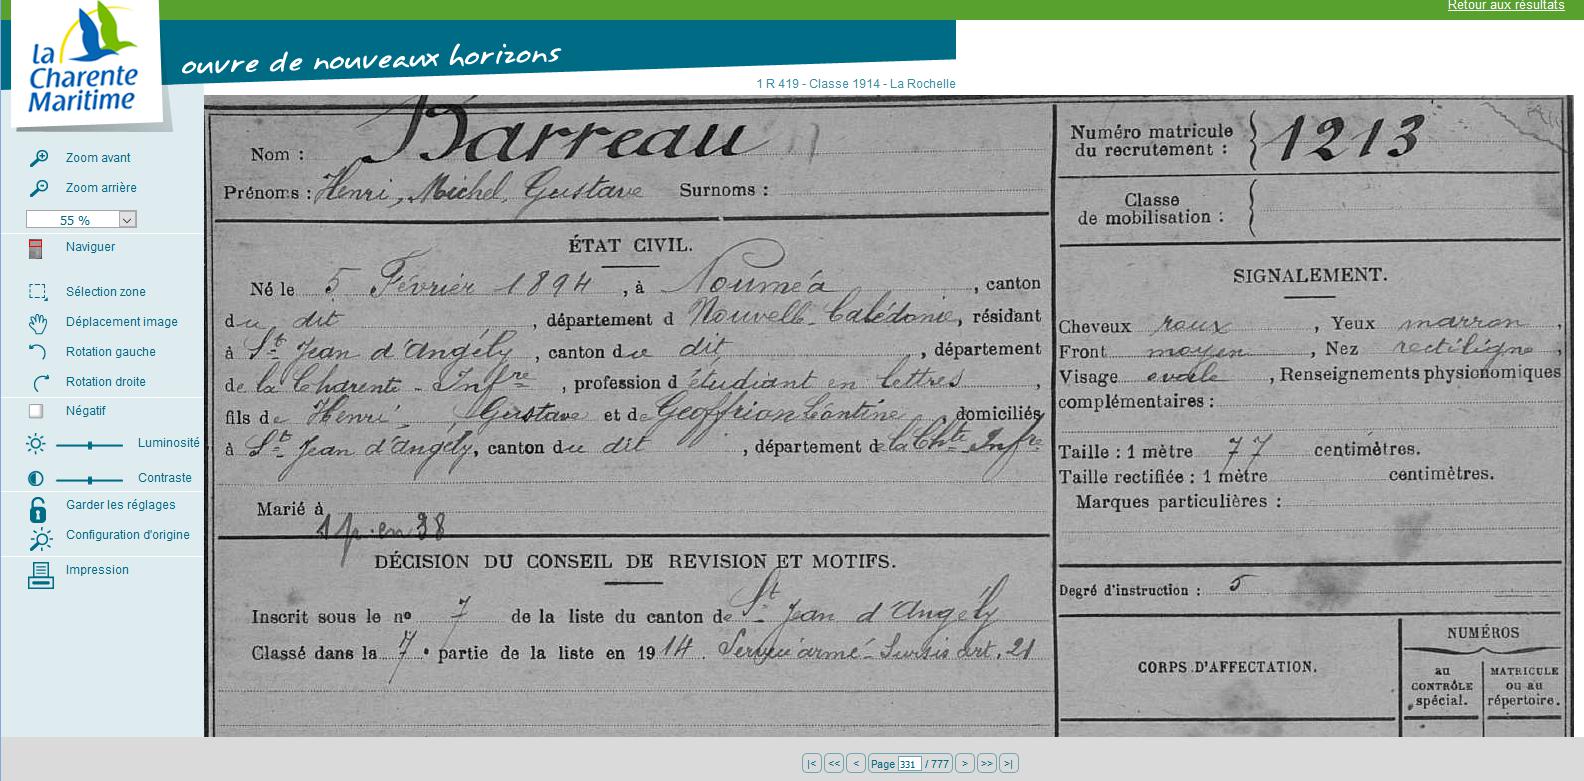 Retour aux résultats
La
Charente
Maritime
ouvre de nouveaux horizons
1 R 419 - Classe 1914 - La Rochelle
Zoom avant
Zoom arrière
55 %
Naviguer
Sélection zone
Déplacement image
Rotation gauche
Rotation droite
Négatif
Luminosité
Contraste
Garder les réglages
Configuration d'origine
Impression
Nom : Barreau
Prénoms : Henri, Michel, Gustave Surnoms :
ÉTAT CIVIL.
Né le 5 Février 1894, à Nouméa, canton
du dit, département d Nouvelle-Calédonie, résidant
à St Jean d'Angély, canton du dit, département
de la Charente-Infre, profession d'étudiant en lettres,
fils de Henri, Gustave et de Geoffrion Léontine domiciliés
à St Jean d'Angély, canton du dit, département de la Chte Infre
Marié à
1 p. en 38
DÉCISION DU CONSEIL DE REVISION ET MOTIFS.
Inscrit sous le no 7 de la liste du canton de St Jean d'Angély
Classé dans la 7e partie de la liste en 1914. Service armé - Sursis art. 21
Numéro matricule
du recrutement : } 1213
Classe
de mobilisation :
SIGNALEMENT.
Cheveux roux, Yeux marron,
Front moyen, Nez rectiligne,
Visage ovale, Renseignements physionomiques
complémentaires :
Taille : 1 mètre 77 centimètres.
Taille rectifiée : 1 mètre centimètres.
Marques particulières :
Degré d'instruction : 5
CORPS D'AFFECTATION.
NUMÉROS
au
CONTRÔLE
spécial.
MATRICULE
ou au
répertoire.
|< << < Page 331 / 777 > >> >|